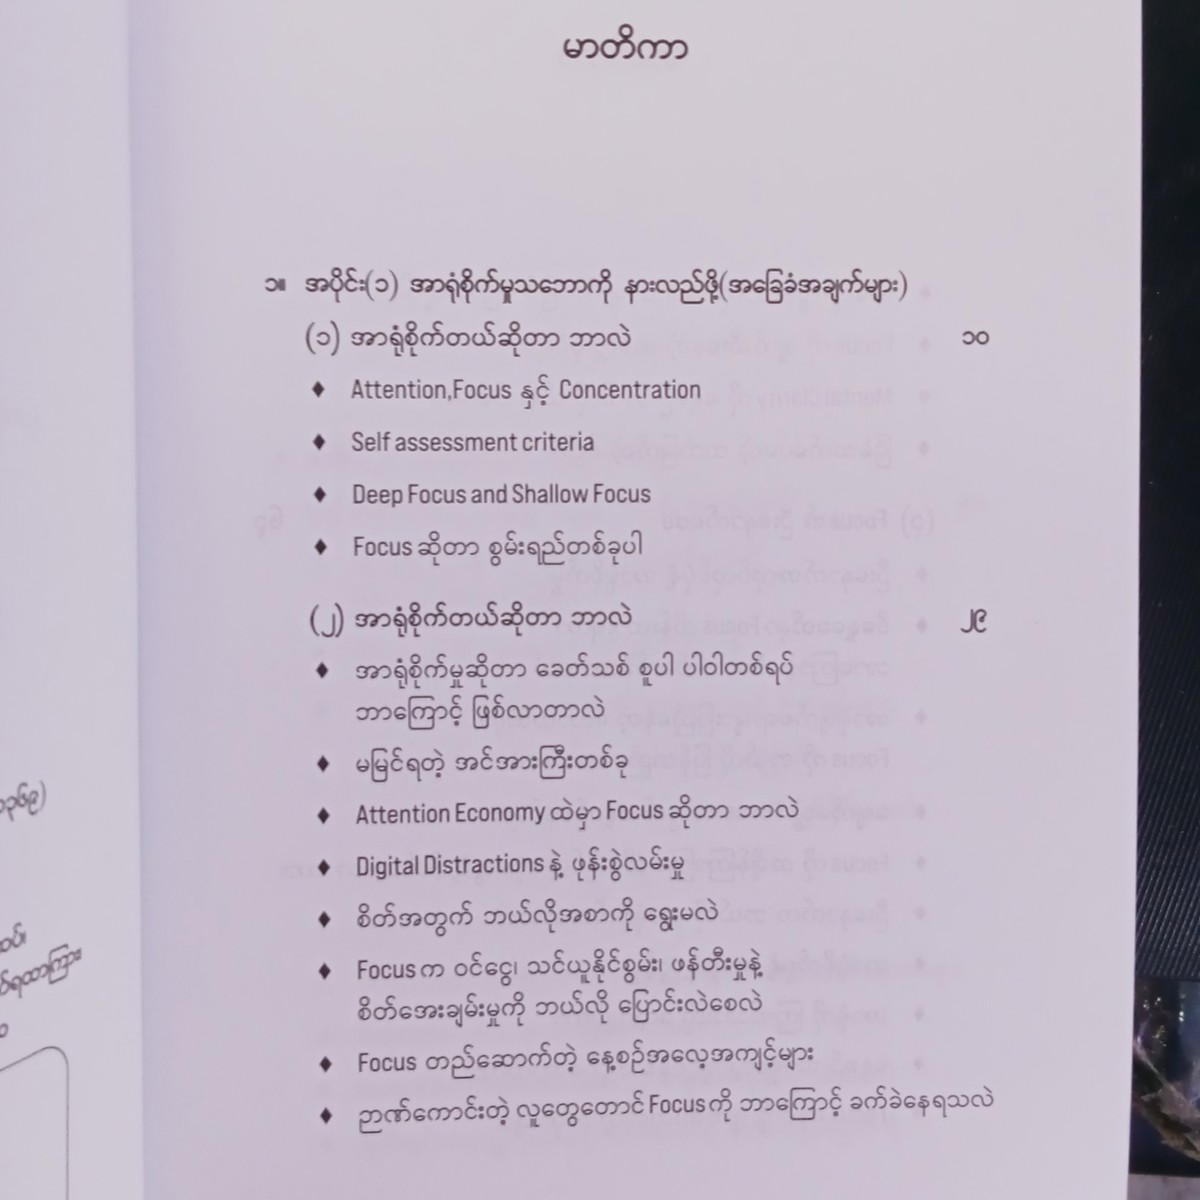 မာတိကာ
၁။ အပိုင်း(၁) အာရုံစိုက်မှုသဘောကို နားလည်ဖို့(အခြေခံအချက်များ)
(၁) အာရုံစိုက်တယ်ဆိုတာ ဘာလဲ ၁၀
♦ Attention,Focus နှင့် Concentration
♦ Self assessment criteria
♦ Deep Focus and Shallow Focus
♦ Focus ဆိုတာ စွမ်းရည်တစ်ခုပါ
(၂) အာရုံစိုက်တယ်ဆိုတာ ဘာလဲ ၂၉
♦ အာရုံစိုက်မှုဆိုတာ ခေတ်သစ် စူပါ ပါဝါတစ်ရပ်
ဘာကြောင့် ဖြစ်လာတာလဲ
♦ မမြင်ရတဲ့ အင်အားကြီးတစ်ခု
♦ Attention Economy ထဲမှာ Focus ဆိုတာ ဘာလဲ
♦ Digital Distractions နဲ့ ဖုန်းစွဲလမ်းမှု
♦ စိတ်အတွက် ဘယ်လိုအစာကို ရွေးမလဲ
♦ Focus က ဝင်ငွေ၊ သင်ယူနိုင်စွမ်း၊ ဖန်တီးမှုနဲ့
စိတ်အေးချမ်းမှုကို ဘယ်လို ပြောင်းလဲစေလဲ
♦ Focus တည်ဆောက်တဲ့ နေ့စဉ်အလေ့အကျင့်များ
♦ ဉာဏ်ကောင်းတဲ့ လူတွေတောင် Focus ကို ဘာကြောင့် ခက်ခဲနေရသလဲ